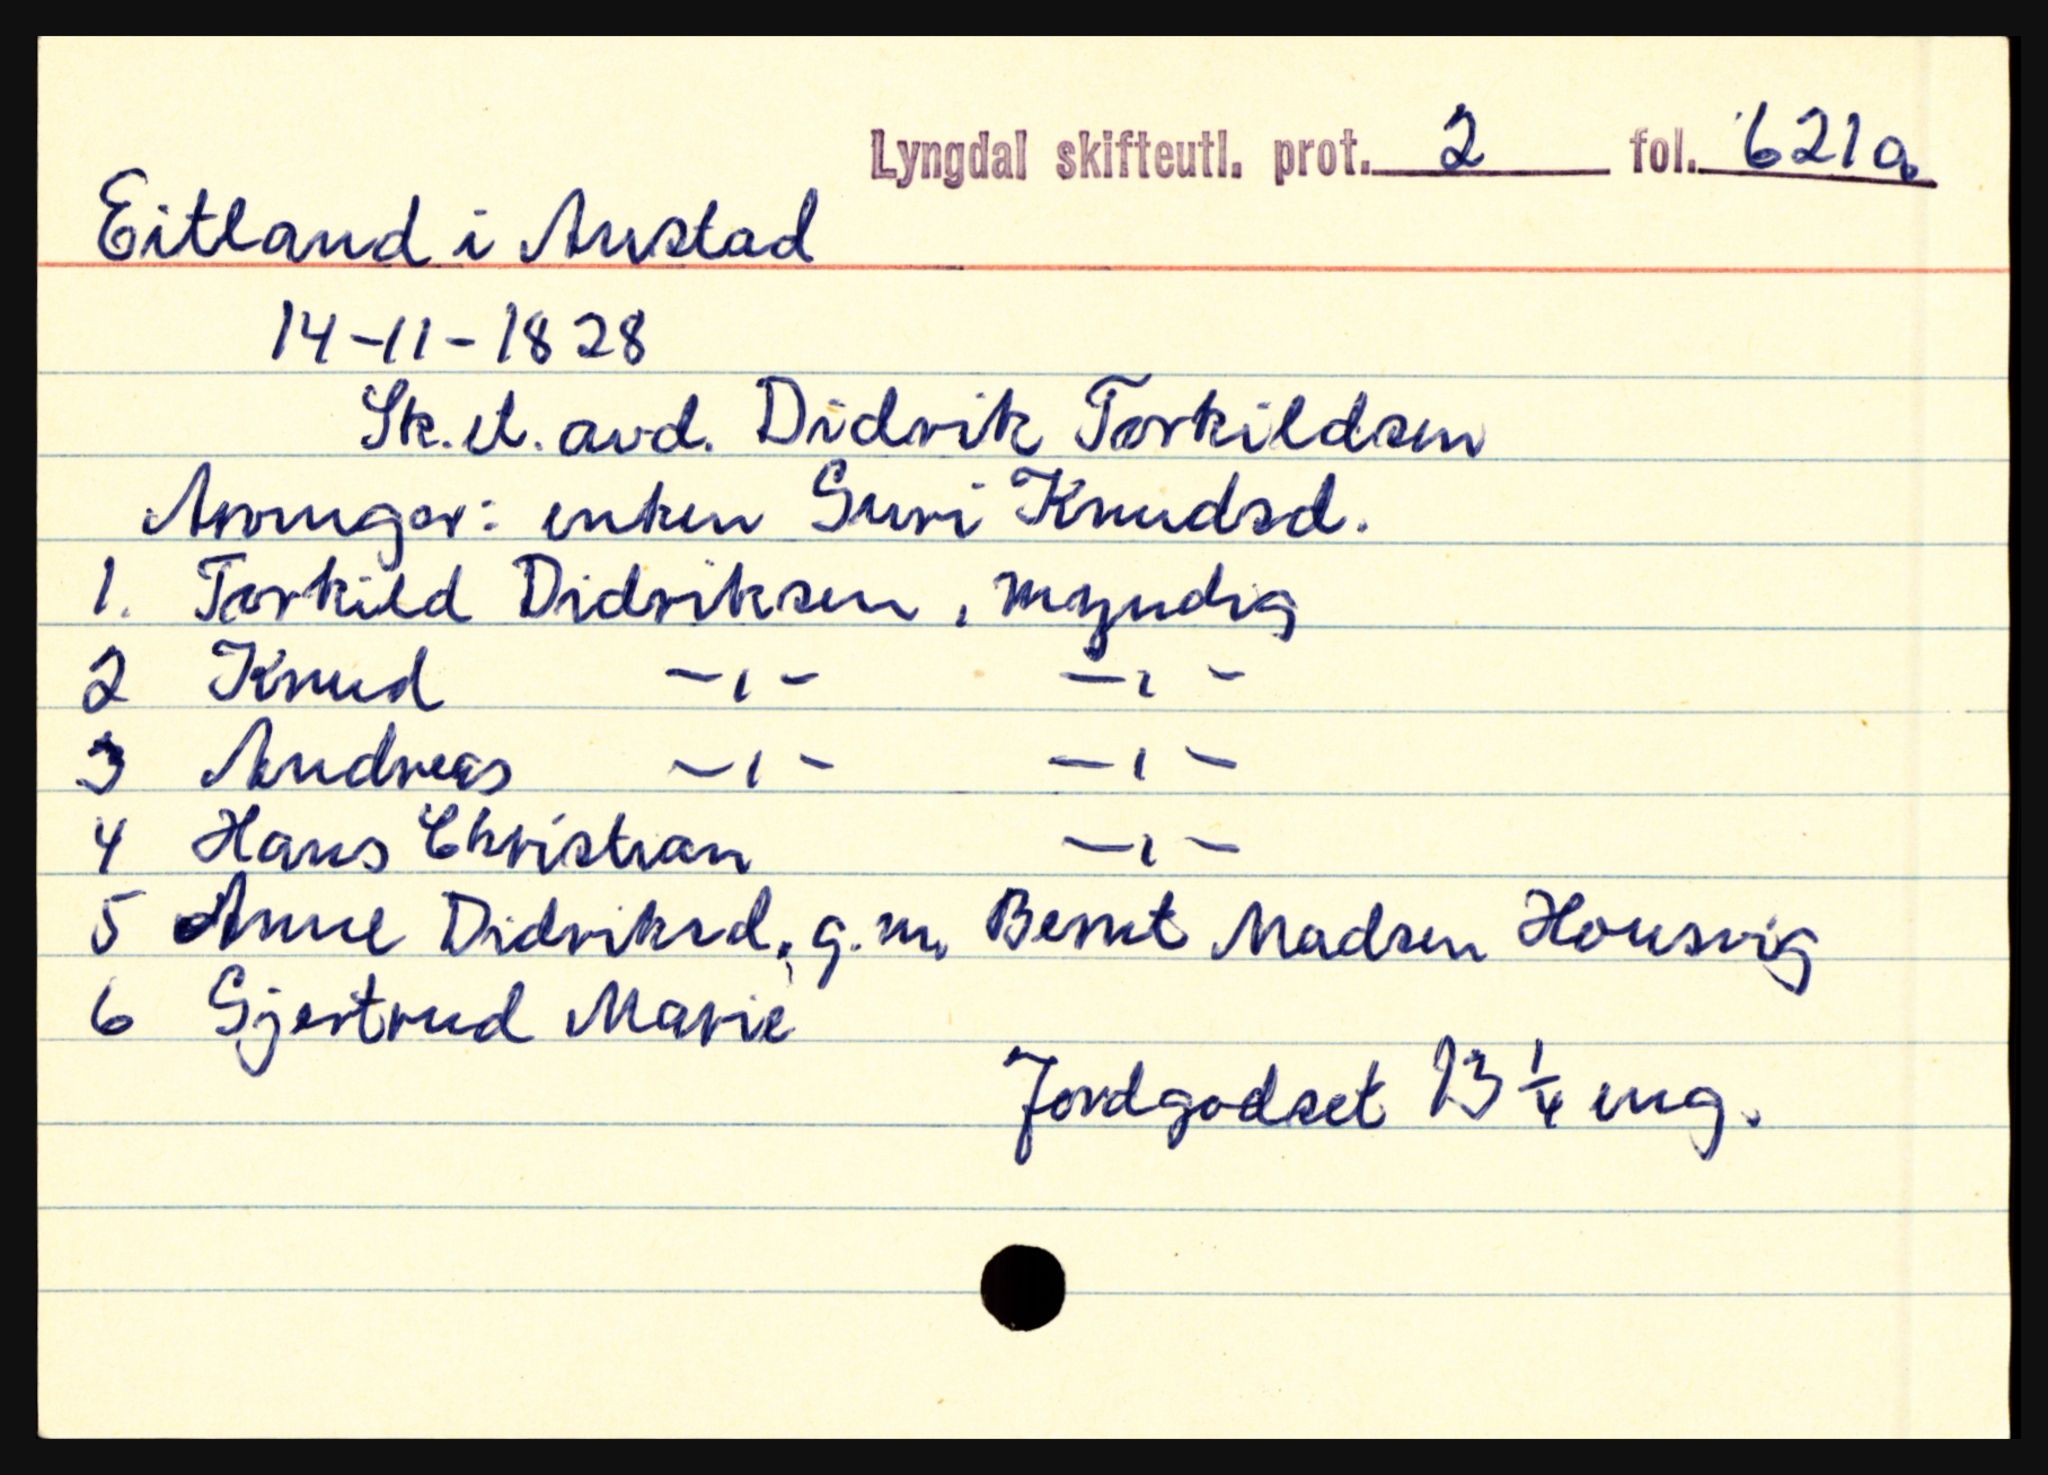 Lyngdal skifteutl. prot. 2 fol. 621a
Eitland i Austad
14-11-1828
Sk.et. avd. Didrik Torkildsen
Arvinger: enken Guri Knudsd.
1. Torkild Didriksen, myndig
2 Knud -,- -,-
3 Andreas -,- -,-
4 Hans Christian -,-
5 Anne Didriksd., g.m. Bernt Madsen Housvig
6 Gjertrud Marie
Jordgodset 13 1/4 eng.